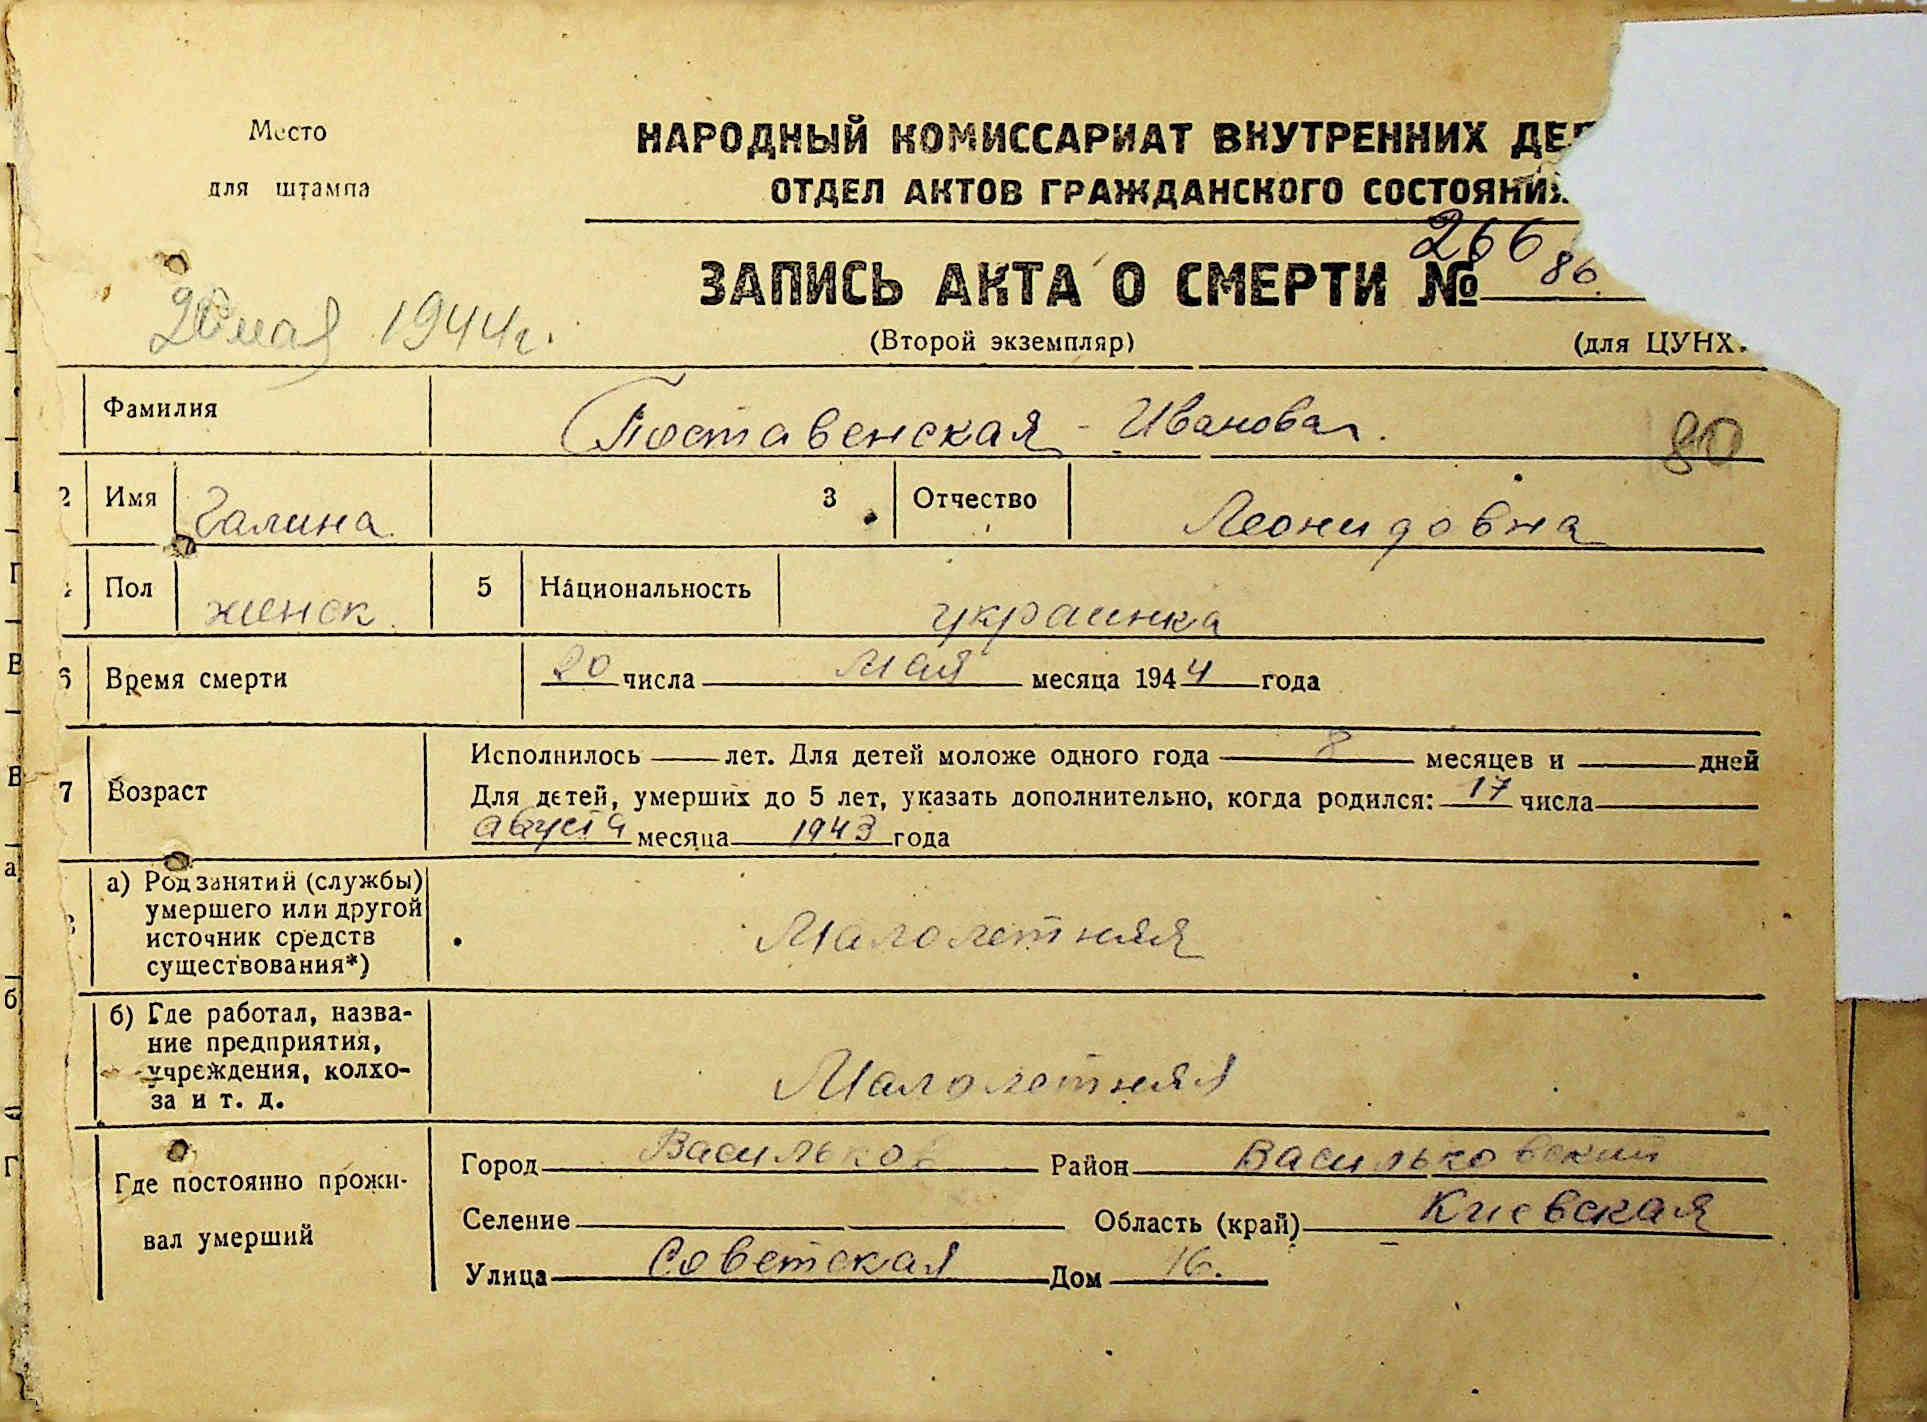 Место
для штампа
НАРОДНЫЙ КОМИССАРИАТ ВНУТРЕННИХ ДЕ
ОТДЕЛ АКТОВ ГРАЖДАНСКОГО СОСТОЯНИЯ
266
ЗАПИСЬ АКТА О СМЕРТИ № 86.
20 мая 1944 г.
(Второй экземпляр) (для ЦУНХ
Фамилия Поставенская - Иванова. 80
2 Имя Галина 3 Отчество Леонидовна
Пол женск. 5 Национальность украинка
6 Время смерти 20 числа мая месяца 1944 года
Исполнилось — лет. Для детей моложе одного года 8 месяцев и дней
7 Возраст Для детей, умерших до 5 лет, указать дополнительно, когда родился: 17 числа
августа месяца 1943 года
а) Род занятий (службы)
умершего или другой
источник средств
существования*)
Малолетняя
б) Где работал, назва-
ние предприятия,
учреждения, колхо-
за и т. д.
Малолетняя
Город Васильков Район Васильковский
Где постоянно прожи-
вал умерший
Селение Область (край) Киевская
Улица Советская Дом 16.